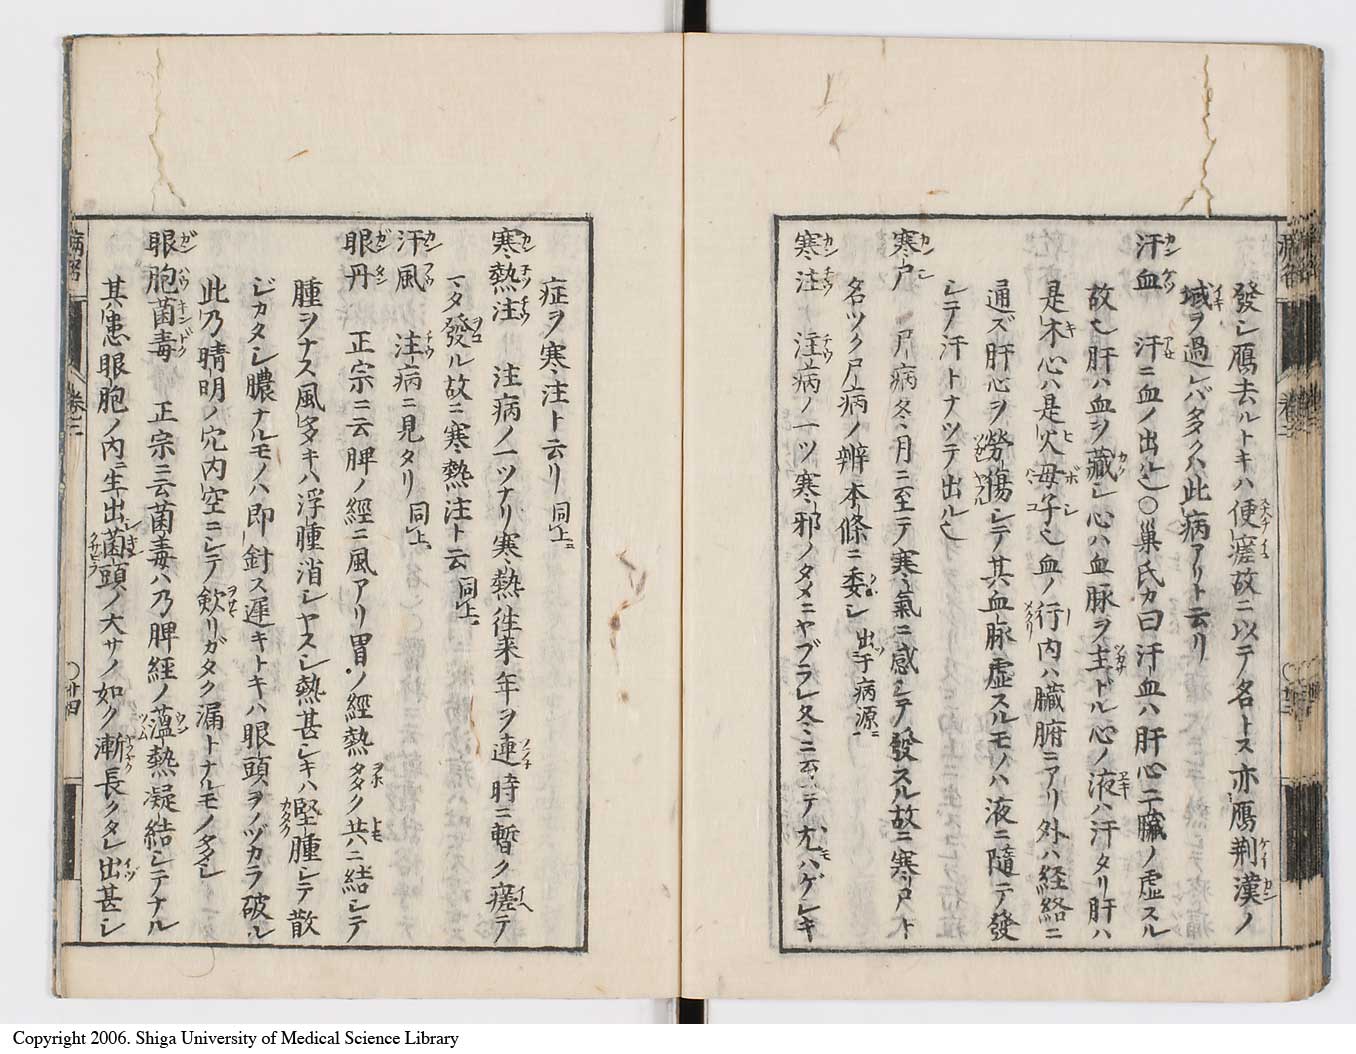 發シ鴈去ルトキハ便瘥故ニ以テ名トス亦鴈荆漢ノ
域ヲ過レバ多クハ此病アリト云リ
汗血 汗ニ血ノ出ル也〇巢氏カ曰汗血ハ肝心二臓ノ虚スル
故也肝ハ血ヲ藏シ心ハ血脉ヲ主トル心ノ液ハ汗タリ肝ハ
是木心ハ是火母子也血ノ行内ハ臓腑ニアリ外ハ経絡ニ
通ズ肝心ヲ勞傷シテ其血脉虚スルモノハ液ニ隨テ發
シテ汗トナツテ出ル也
寒尸 尸病冬月ニ至テ寒氣ニ感シテノ發スル故ニ寒尸ト
名ツク尸病ノ辨本條ニ委シ 出于病源ニ
寒注 注病ノ一ツ寒邪ノタメニヤブラレ冬ニ至テ尤ハゲシキ
症ヲ寒注ト云リ 同上ニ
寒熱注 注病ノ一ツナリ寒熱往来年ヲ連時ニ暫ク瘥テ
マタ發ル故ニ寒熱注ト云 同上ニ
汗風 注病ニ見タリ 同上ニ
眼丹 正宗ニ云脾ノ經ニ風アリ胃ノ經熱多ク共ニ結シテ
腫ヲナス風多キハ浮腫消シヤスシ熱甚シキハ堅腫シテ散
ジカタシ膿ナルモノハ即針ス遲キトキハ眼頭ヲノヅカラ破ル
此乃睛明ノ穴内空ニシテ歛リガタク漏トナルモノ多シ
眼胞菌毒 正宗ニ云菌毒ハ乃脾經ノ薀熱凝結シテナル
其患眼胞ノ内ニ生出菌頭ノ大サノ如ク漸長クタレ出甚シ
卷二
〇廿四
Copyright 2006. Shiga University of Medical Science Library